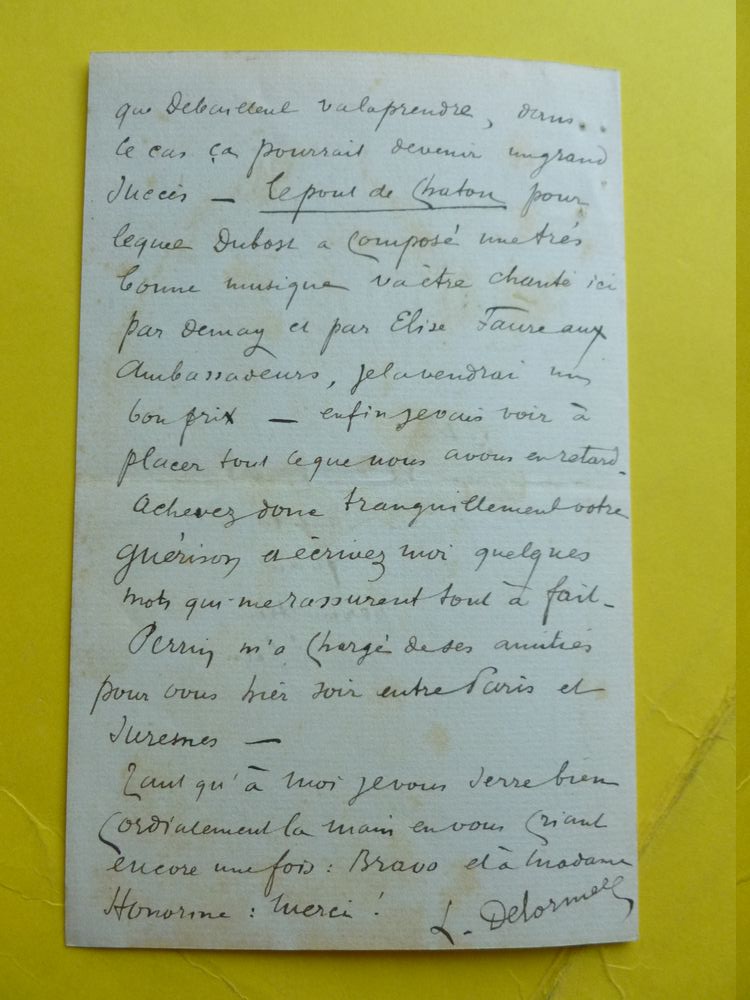 que Debailleul va la prendre, dans
le cas ça pourrait devenir un grand
succès — Le pont de Chatou pour
lequel Dubost a composé une très
bonne musique va être chanté ici
par Demay et par Elise Faure aux
Ambassadeurs, je la vendrai un
bon prix — enfin je vais voir à
placer tout ce que nous avons en retard.
Achevez donc tranquillement votre
guérison et écrivez moi quelques
mots qui me rassurent tout à fait —
Perrin m'a chargé de ses amitiés
pour vous hier soir entre Paris et
Suresnes —
Tant qu'à moi je vous serre bien
cordialement la main en vous criant
encore une fois : Bravo et à Madame
Honorine : Merci !
L. Delormel